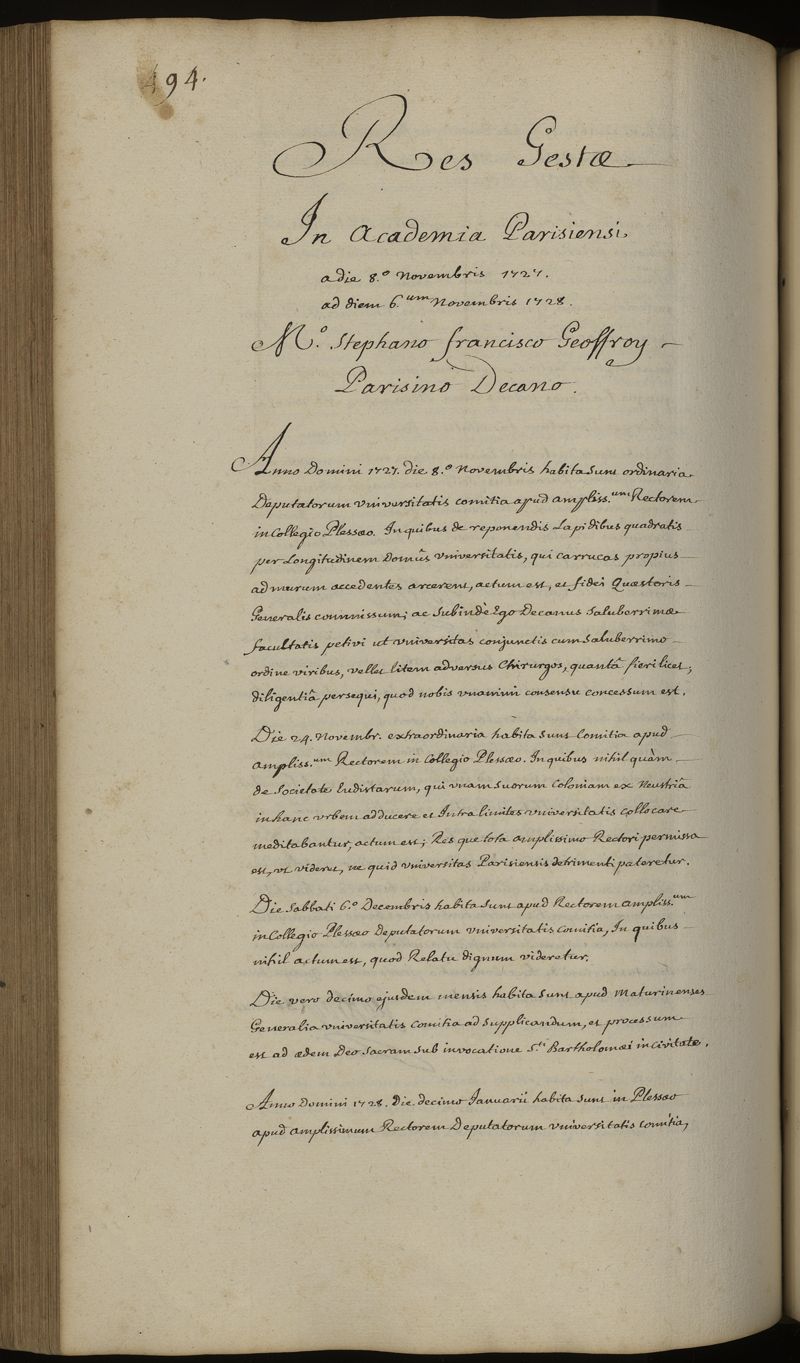 494.
Res Gestæ
In Academia Parisiensi.
a die 8.º Novembris 1727.
ad diem 6.um Novembris 1728.
M.º Stephano francisco Geoffroy
Parisino Decano.
Anno Domini 1727. die 8.º Novembris habita sunt ordinaria
Deputatorum Vniversitatis comitia apud ampliss.um Rectorem
in Collegio Plessæo. In quibus de reponendis Lapidibus quadratis
per Longitudinem Domûs Vniversitatis, qui carrucas propius
ad murum accedentes arcerent, actum est, et fidei Quæstoris
Generalis commissum; ac subindè Ego Decanus Saluberrimæ
facultatis petivi ut Vniversitas conjunctis cum Saluberrimo
ordine viribus, vellet litem adversus Chirurgos, quantâ fieri licet,
diligentiâ persequi, quod nobis vnanimi consensu concessum est.
Die 24. Novembr. extraordinaria habita sunt Comitia apud
ampliss.um Rectorem in Collegio Plessæo. In quibus nihil quàm
de Societate Eudistarum, qui vnam suorum Coloniam ex Neustriâ
in hanc vrbem adducere et Intra limites Vniversitatis collocare
meditabantur, actum est; Res que tota amplissimo Rectori permissa
est, vt videret, ne quid Vniversitas Parisiensis detrimenti pateretur.
Die Sabbati 6.º Decembris habita sunt apud Rectorem ampliss.um
in Collegio Plessæo Deputatorum Vniversitatis Comitia, In quibus
nihil actum est, quod Relatu dignum videretur.
Die vero decimo ejusdem mensis habita sunt apud Maturinenses
Generalia Vniversitatis Comitia ad supplicandum, et processum
est ad ædem Deo Sacram sub invocatione S.ti Bartholomæi in Civitate.
Anno Domini 1728. Die decimo Januarii habita sunt in Plessæo
apud amplissimum Rectorem Deputatorum Vniversitatis Comitia,